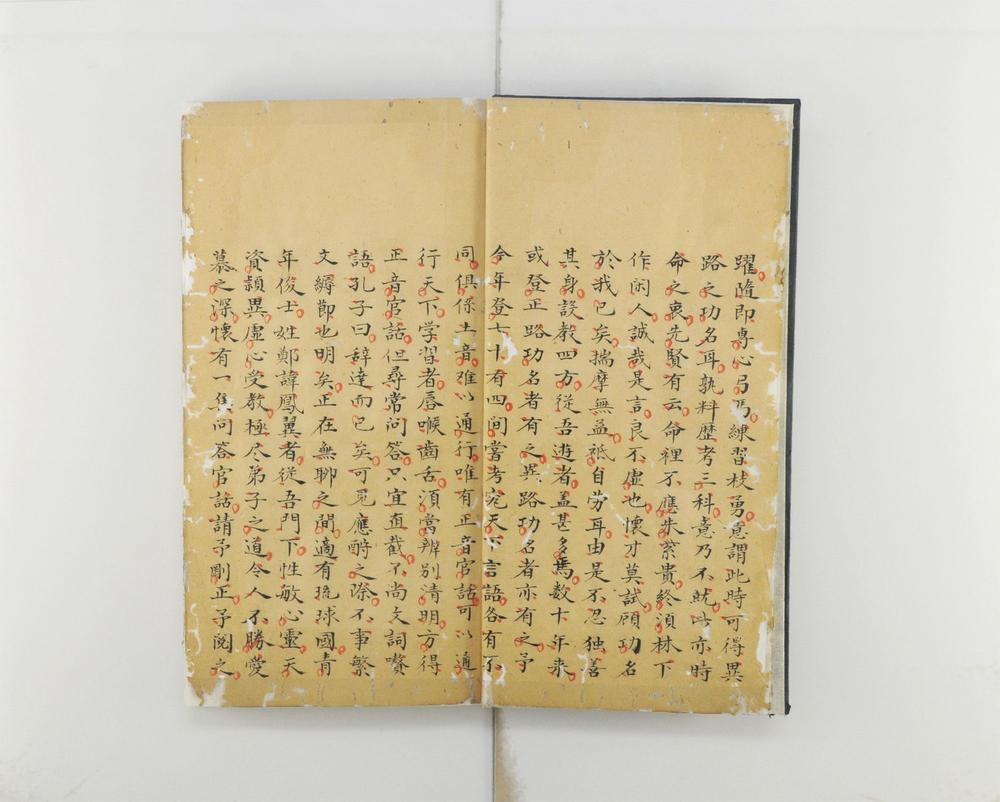 躍隨即專心弓馬練習技勇意謂此時可得異
路之功名耳孰料歷考三科意乃不就此亦時
命之衷先賢有云命裡不應朱紫貴終須林下
作闲人誠哉是言良不虛也懷才莫試顧功名
於我已矣揣摩無益祇自劳耳由是不忍独善
其身設教四方從吾遊者盖甚多焉数十年来
或登正路功名者有之異路功名者亦有之予
今年登七十有四间嘗考究天下言語各有不
同俱係土音难以通行唯有正音官話可以通
行天下学習者唇喉齒舌須當辨別清明方得
正音官話但尋常问答只宜直截不尚文詞嘐
語孔子曰辞達而已矣可見應酧之際不事繁
文縟節也明矣正在無聊之间適有琉球國青
年俊士姓鄭諱鳳翼者從吾門下性敏心靈天
資穎異虛心受教極尽弟子之道令人不勝愛
慕之深懷有一集问答官話請予剛正予阅之